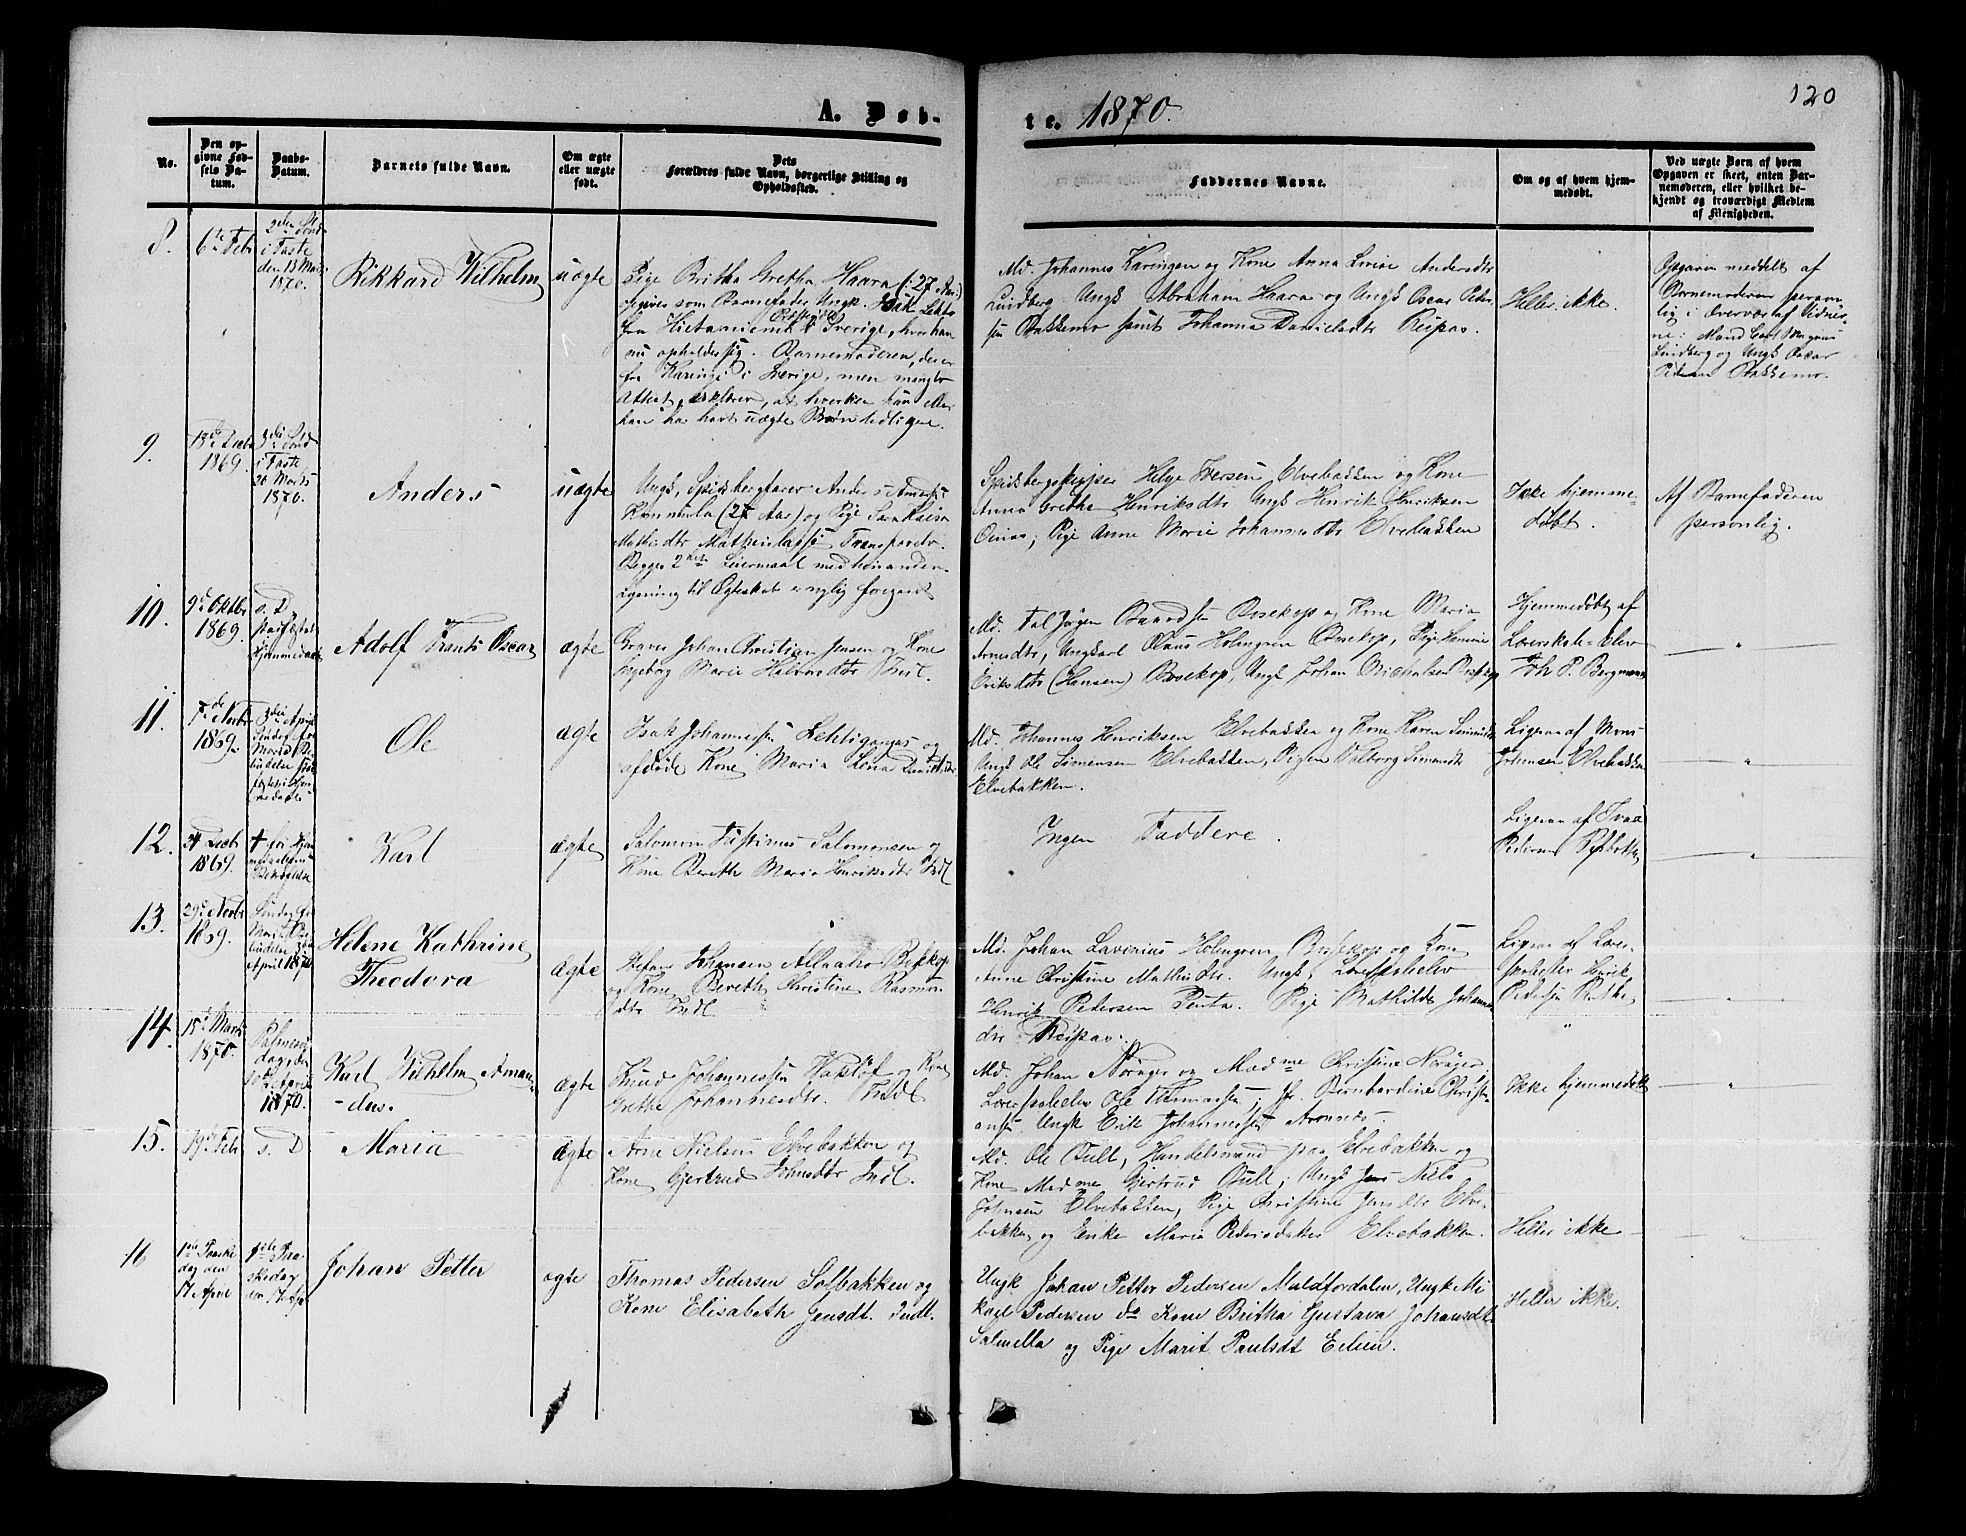 120
A. Døb-
te. 1870.
No.
Den op-
givne Fød-
sels Da-
tum.
Daabs-
Datum.
Barnets fulde Navn.
Om ægte
eller uægte
født.
Dets
Forældres fulde Navn, borgerlige Stilling og
Opholdssted.
Faddernes Navne.
Om og af hvem hjem-
medøbt.
Ved uægte Børn af hvem
Opgaven er skeet, enten Bar-
nemoderen, eller hvilket be-
kjendt og troværdigt Medlem
af Menigheden.
8.
6te Febr
2den Sønd
i Faste
den 13 Marts
1870.
Rikkard Wilhelm
uægte
Pige Britha Gretha Haara (: 27 Aar :)
opgives som Barnefader Ungk. Isak
fra Hietaniemi i Sverige, hvor han
nu opholder sig. Barnemoderen, der er
fra Karingi i Sverige, men mangler
Attest, erklærer, at hverken hun eller
han har havt uægte Børn tidligere.
Md. Johannes Karingen og Kone Anna Lovise Andersdtr
Lindberg. Ungk Abraham Haara og Ungk Oscar Peter-
sen Bakkemo samt Johanna Danielsdtr Reipas.
Heller ikke.
Opgaven meddelt af
Barnemoderen person-
lig i Overvær af Vidner-
ne: Mand Carl Magnus
Lindberg og Ungk Oscar
Petersen Bakkemo.
9.
18de Decbr
1869.
3die Sønd
i Faste
20 Marts
1870.
Anders
uægte
Ungk, Spidsbergfarer Anders
(27 Aar) og Pige Sara Kaisa
Begges 2det Leiermaal med hinanden.
Lysning til Ægteskab er nylig foregaaet
Spidsbergskipper Helge Iversen Elvebakken og Kone
Anna Grethe Henriksdtr Ungk Henrik Henriksen
Pige Anne Marie Johannesdtr Elvebakken
Ikke hjemme-
døbt.
Af Barnefaderen
personlig.
10.
9de Oktbr
1869.
s. D
stadfæstet
Hjemmedaab
Adolf Frants Oscar
ægte
Graver Johan Christian Jensen og Kone
Ingeborg Marie Halvorsdtr Indl.
Md. Tal Jørgen Baardsen Bosekop og Kone Maria
Arnesdtr, Ungkarl Claus Holmgren Bosekop, Pige Hanna
Eriksdtr (Hansen) Bosekop, Ungk Johan Michelsen Bosekop
Hjemmedøbt af
Lærerskole-Elev
Joh P. Bergmann
"
11.
7de Novbr
1869.
3die April
Søndag før
Mariæ Be-
budelse
Ole
ægte
Isak Johannessen Lehligangas og
afdøde Kone Maria Lena
Md. Johannes Henriksen Elvebakken og Kone Karen Simonsdtr
Ungk Ole Simonsen Elvebakken, Pigen Valborg Simonsdtr
Elvebakken.
Ligesaa af Mons
Johnsen Elvebakken
"
12.
Decbr
1869.
Karl
ægte
Salomon Justinus Salomonsen og
Kone Bereth Maria Henriksdtr Indl
Ingen Faddere.
Ligesaa af
"
13.
29de Novbr
1869.
Søndag før
Mariæ Be-
budelse 3die
April 1870
Helene Kathrine
Theodora
ægte
Stefan Johansen Bosekop
og Kone Bereth Christine Rasmus-
dtr Indl
Md. Johan Lavinius Holmgren Bosekop og Kone
Anne Christine Mathisdtr. Ungk, Lærerskoleelev
Henrik Petersen Penta. Pige Mathilde Johannes
dtr Reipas.
Ligesaa af Lærer-
skoleelev Henrik
Petersen
"
14.
15de Marts
1870.
Palmesøn-
dag den
10de April
1870.
Karl Wilhelm Aman-
-dus.
ægte
Knud Johannessen og Kone
Grethe Johannesdtr. Indl
Md. Johan Norager og Madme Christine Norager,
Lærerskoleelev Ole Thomassen; Jfr. Bernhardine Christi-
ansen, Ungk Erik Johannessen Aronnæs.
Ikke hjemmedøbt
"
15.
19de Febr.
s. D
Maria
ægte
Arne Nielsen Elvebakken og
Kone Gjertrud Johnsdtr Indl.
Md. Ole Bull, Handelsmand paa Elvebakken og
Kone Madme Gjertrud Bull; Ungk Jens Nils
Johnsen Elvebakken, Pige Christine Jensdtr Elve-
bakken og Enke Maria Pedersdatter Elvebakken.
Heller ikke
"
16
1ste Paaske
dag den
17 April
1ste Paa-
skedag
den 17 Apr
Johan Petter
ægte
Thomas Pedersen Solbakken og
Kone Elisabeth Jensdt. Indl.
Ungk Johan Petter Pedersen Muldfordalen, Ungk Mi
kael Pedersen do Kone Britha Gustava Johansdt.
Salmella og Pige Marit Paulsdt Eelien.
Heller ikke.